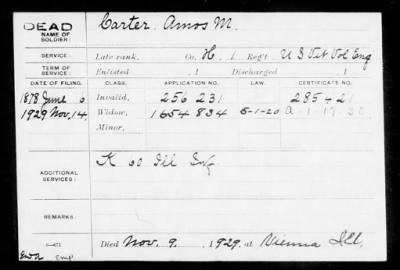 DEAD Carter, Amos M.
NAME OF SOLDIER:
SERVICE: Late rank, Co. H, 1 Reg't U S Vet Vol Eng
TERM OF SERVICE: Enlisted , 1 Discharged , 1
DATE OF FILING. CLASS. APPLICATION NO. LAW. CERTIFICATE NO.
1878 June Invalid, 256 231
1929 Nov. 14. Widow, 1654834 5-1-20 A-1-17-30
Minor,
ADDITIONAL SERVICES: K 60 Ill Inf
REMARKS:
Died Nov. 9, 1929, at Vienna Ill.